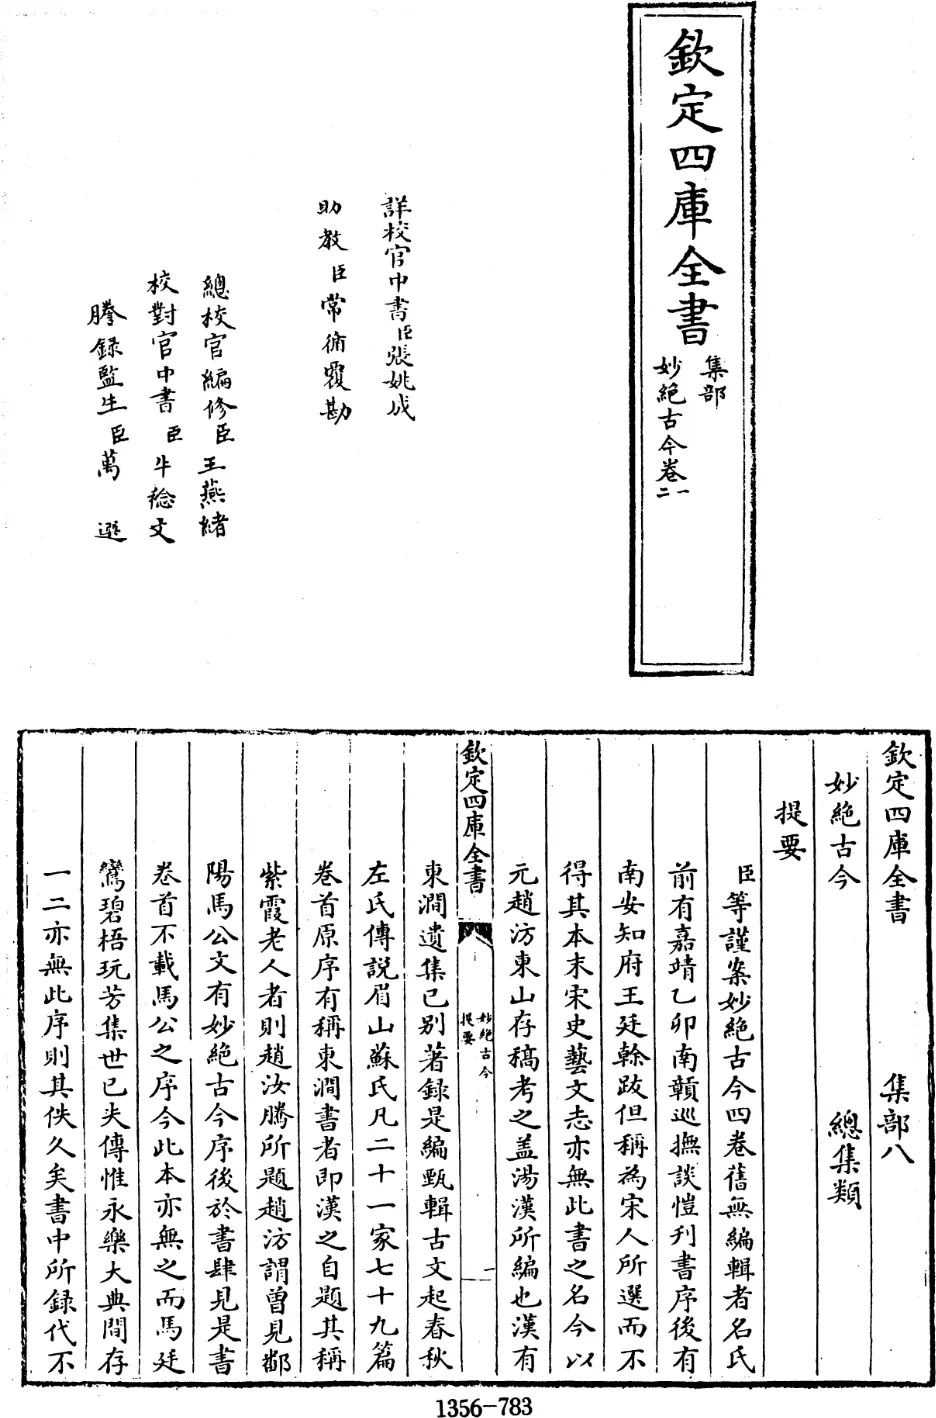 欽定四庫全書
集部
妙絶古今卷一
二
詳校官中書臣張姚成
助教臣常循覆勘
總校官編修臣王燕緒
校對官中書臣牛稔文
謄録監生臣萬
欽定四庫全書 集部八
妙絶古今 總集類
提要
臣等謹案妙絶古今四卷舊無編輯者名氏
前有嘉靖乙卯南贛巡撫談愷刊書序後有
南安知府王廷榦跋但稱為宋人所選而不
得其本末宋史藝文志亦無此書之名今以
元趙汸東山存稿考之盖湯漢所編也漢有
欽定四庫全書
妙絶古今
提要
一
東澗遺集已别著録是編甄輯古文起春秋
左氏傳訖眉山蘇氏凡二十一家七十九篇
卷首原序有稱東澗書者即漢之自題其稱
紫霞老人者則趙汝騰所題趙汸謂曾見鄱
陽馬公文有妙絶古今序後於書肆見是書
卷首不載馬公之序今此本亦無之而馬廷
鸞碧梧玩芳集世已失傳惟永樂大典間存
一二亦無此序則其佚久矣書中所録代不
1356-783